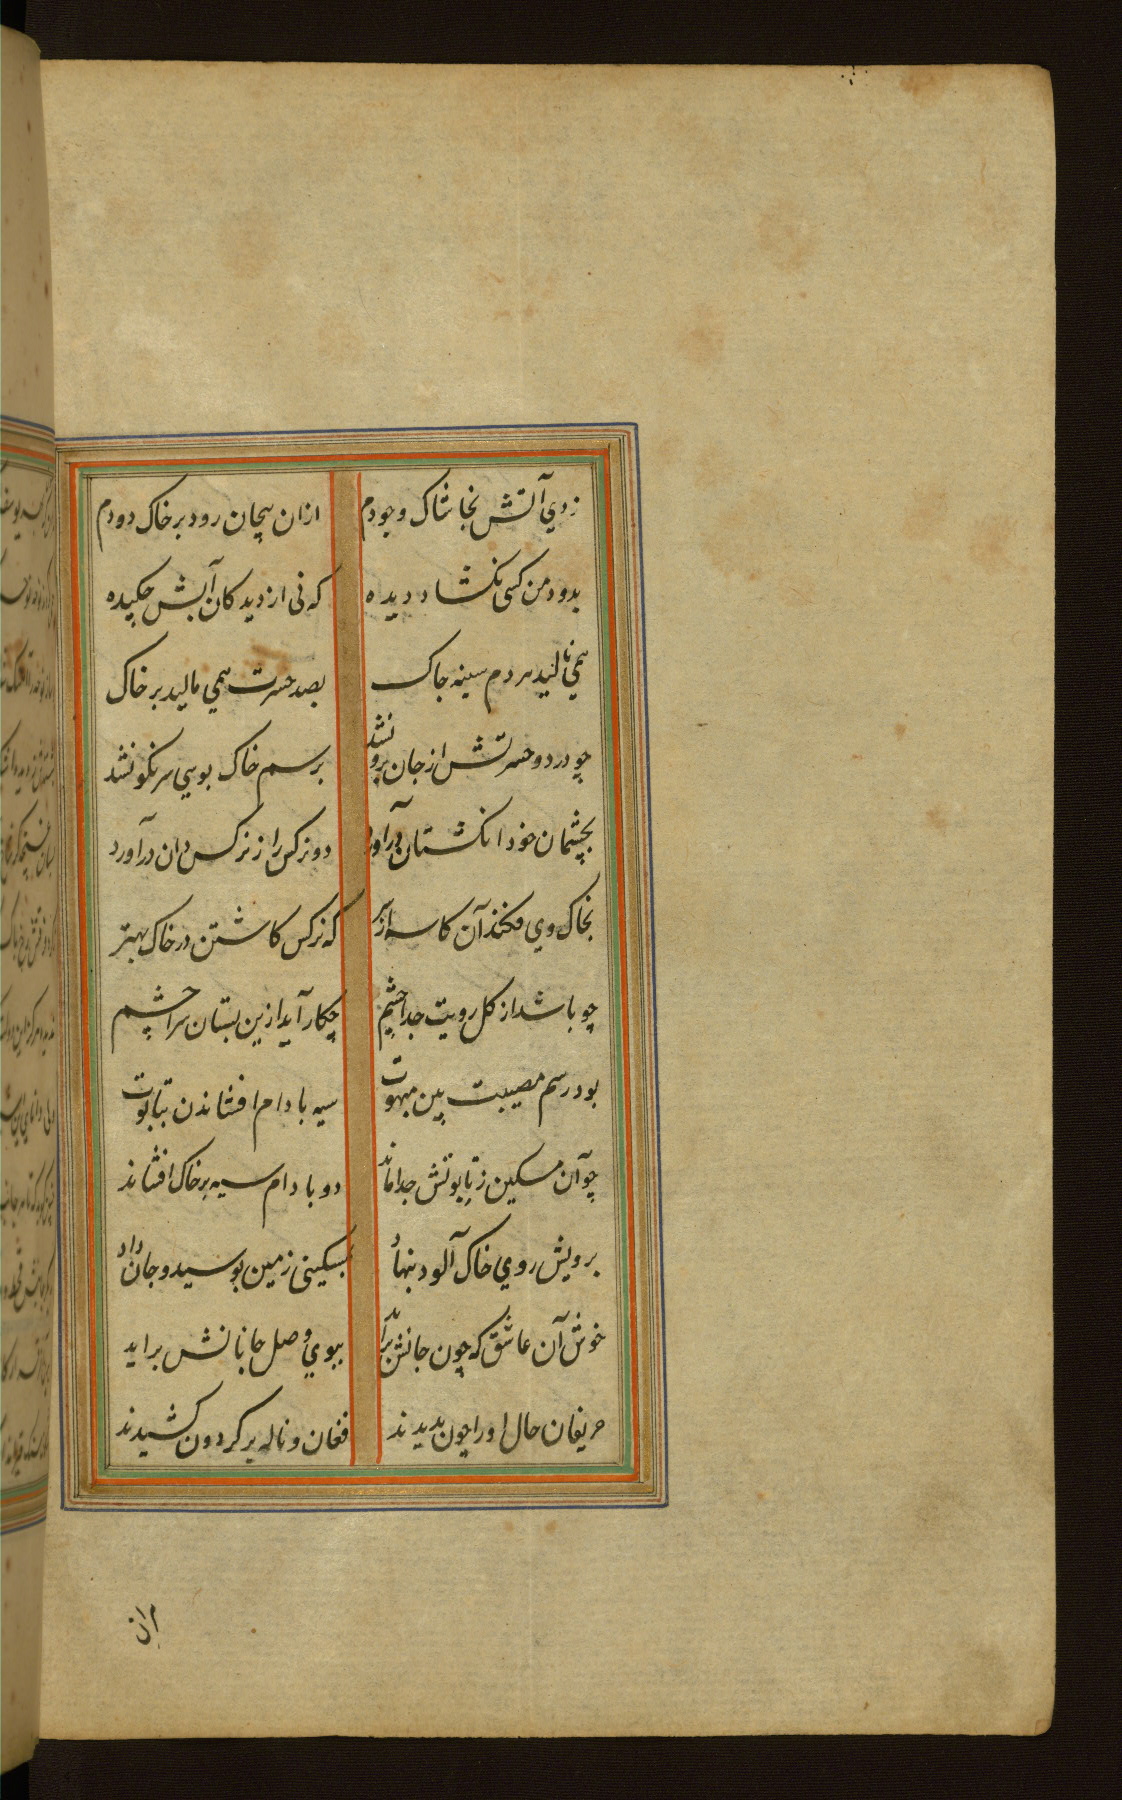 زدي آتش بخاشاک وجودم ازان پیچان رود بر خاک دودم
بدود من کسی نکشاد دیده که نی از دیدکان آبش چکیده
همي نالید هر دم سینه چاک بصد حسرت همي مالید بر خاک
چو درد و حسرتش از جان برون نشد برسم خاک بوسي سرنکون نشد
بچشمان خود انکشتان درآورد دو نرکس را ز نرکس دان درآورد
بخاک وي فکند آن کاسه از سر که نرکس کاشتن در خاک بهتر
چو باشد از کل رویت جدا چشم چکار آید ازین بستان سرا چشم
بود رسم مصیبت بین مبهوت سیه بادام افشاندن بتابوت
چو آن مسکین ز تابوتش جدا ماند دو بادام سیه بر خاک افشاند
برویش روي خاک آلود بنهاد بمسکینی زمین بوسید و جان داد
خوش آن عاشق که چون جانش برآید ببوي وصل جانانش براید
حریفان حال او را چون بدیدند فغان و ناله بر کردون کشیدند